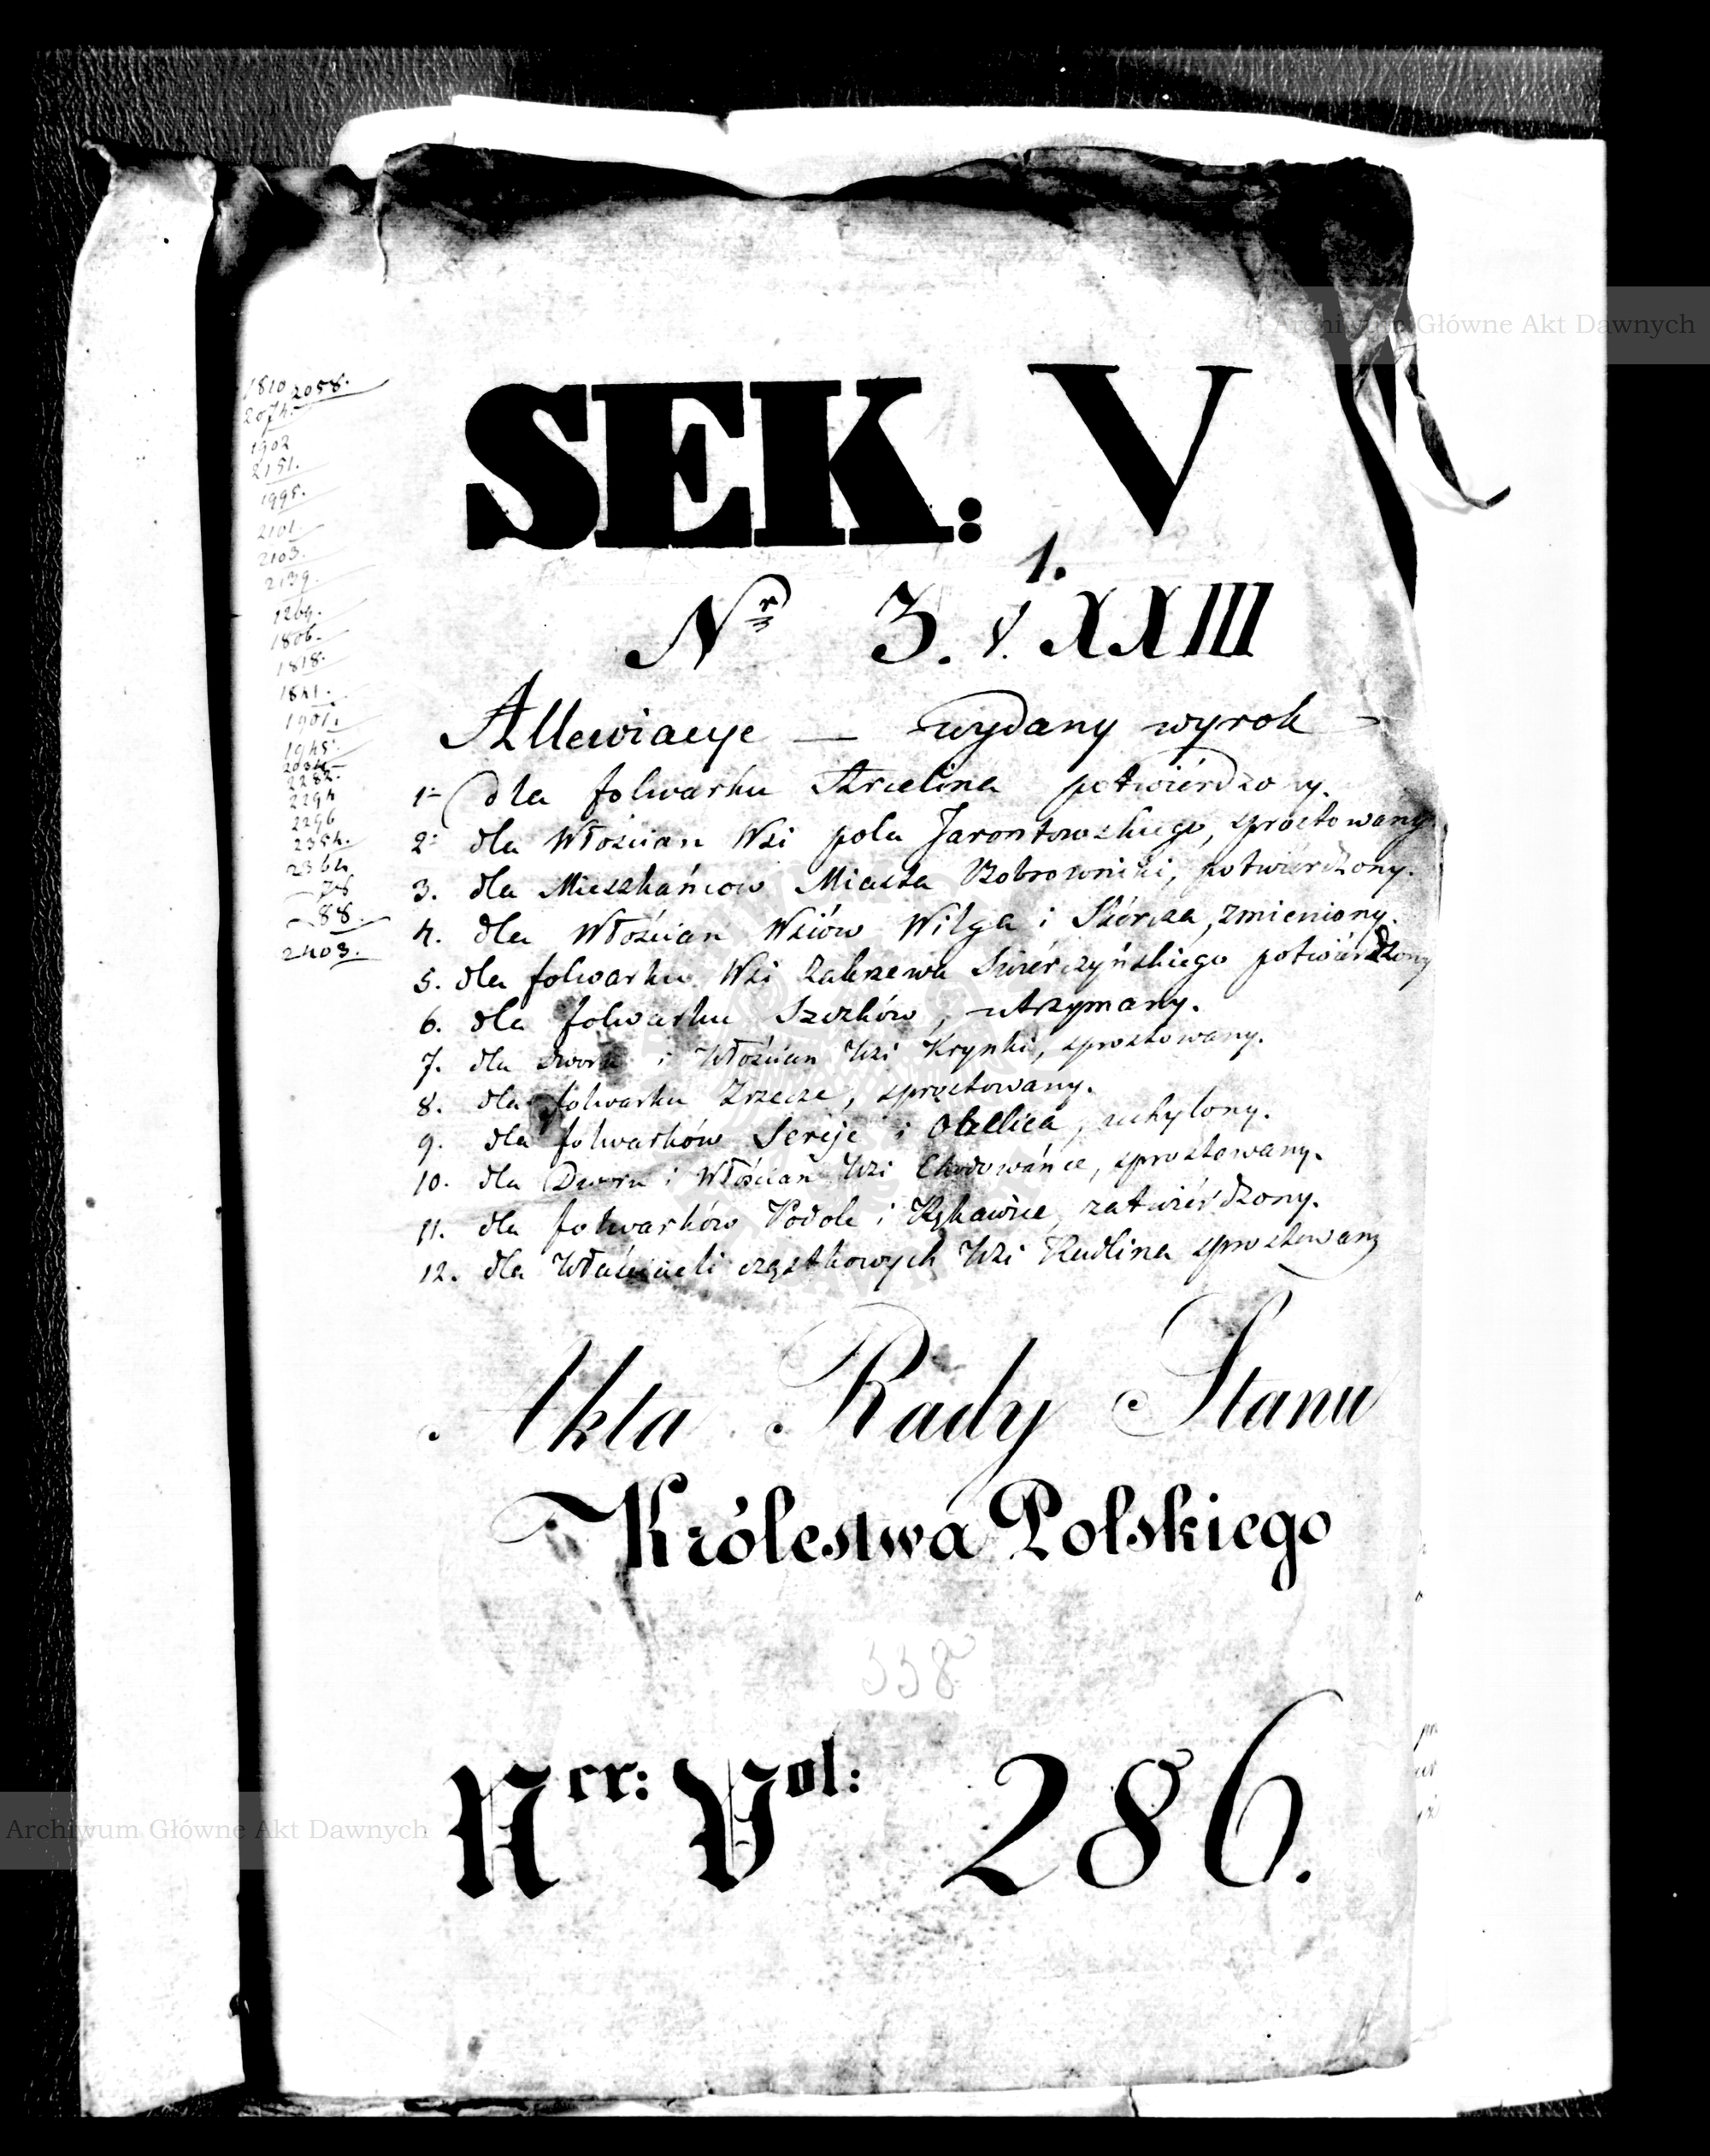 Archiwum Główne Akt Dawnych
1810 2058.
2074.
1902
2151.
1995.
2101.
2103.
2139.
1269.
1806.
1818.
1841.
1901.
1945.
2282.
2294
2296
2354.
2364
78
88.
2403.
SEK: V
1.
Nr 3. V. XXIII
Allewiacye — wydany wyrok —
1= dla folwarku potwierdzony.
2= dla Włościan Wsi pola Jarontowskiego, sprostowany
3. dla Mieszkańcow Miasta Bobrowniki, potwiérdzony.
4. dla Włościan Wsiów Wilga i Skórcza, zmieniony.
5. dla folwarku Wsi Zakrzewa Świérczyńskiego potwiérdzony
6. dla folwarku Szczków, utrzymany.
7. dla Dworu i Włościan Wsi Krynki, sprostowany.
8. dla folwarku Zrzecze, sprostowany.
9. dla folwarków Sereje i Obellica, uchylony.
10. dla Dworu i Włościan Wsi Chodowańce, sprostowany.
11. dla folwarków Podole i Rękawice, zatwiérdzony.
12. dla Właścicieli cząstkowych Wsi Rudlina sprostowany
Akta Rady Stanu
Królestwa Polskiego
338
Ner: Vol: 286.
Archiwum Główne Akt Dawnych